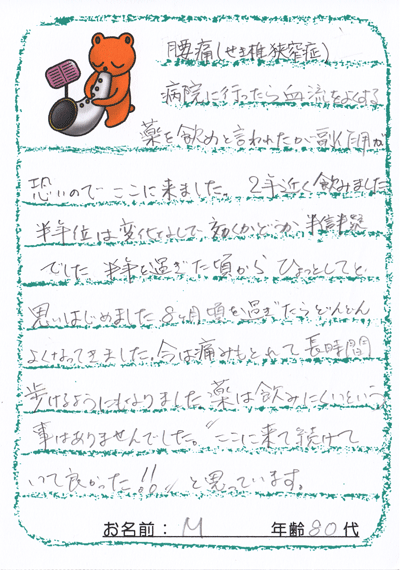 腰痛(せき椎狭窄症)
病院に行ったら血流をよくする
薬を飲めと言われたが副作用が
恐いのでここに来ました。2年近く飲みました
半年位は変化なしで効くかどうか半信半疑
でした。半年を過ぎた頃からひょっとしてと
思いはじめました。8ヶ月頃を過ぎたらどんどん
よくなってきました。今は痛みもとれて長時間
歩けるようにもなりました。薬は飲みにくいという
事はありませんでした。"ここに来て続けて
いて良かった!!"と思っています。
お名前:M 年齢80代